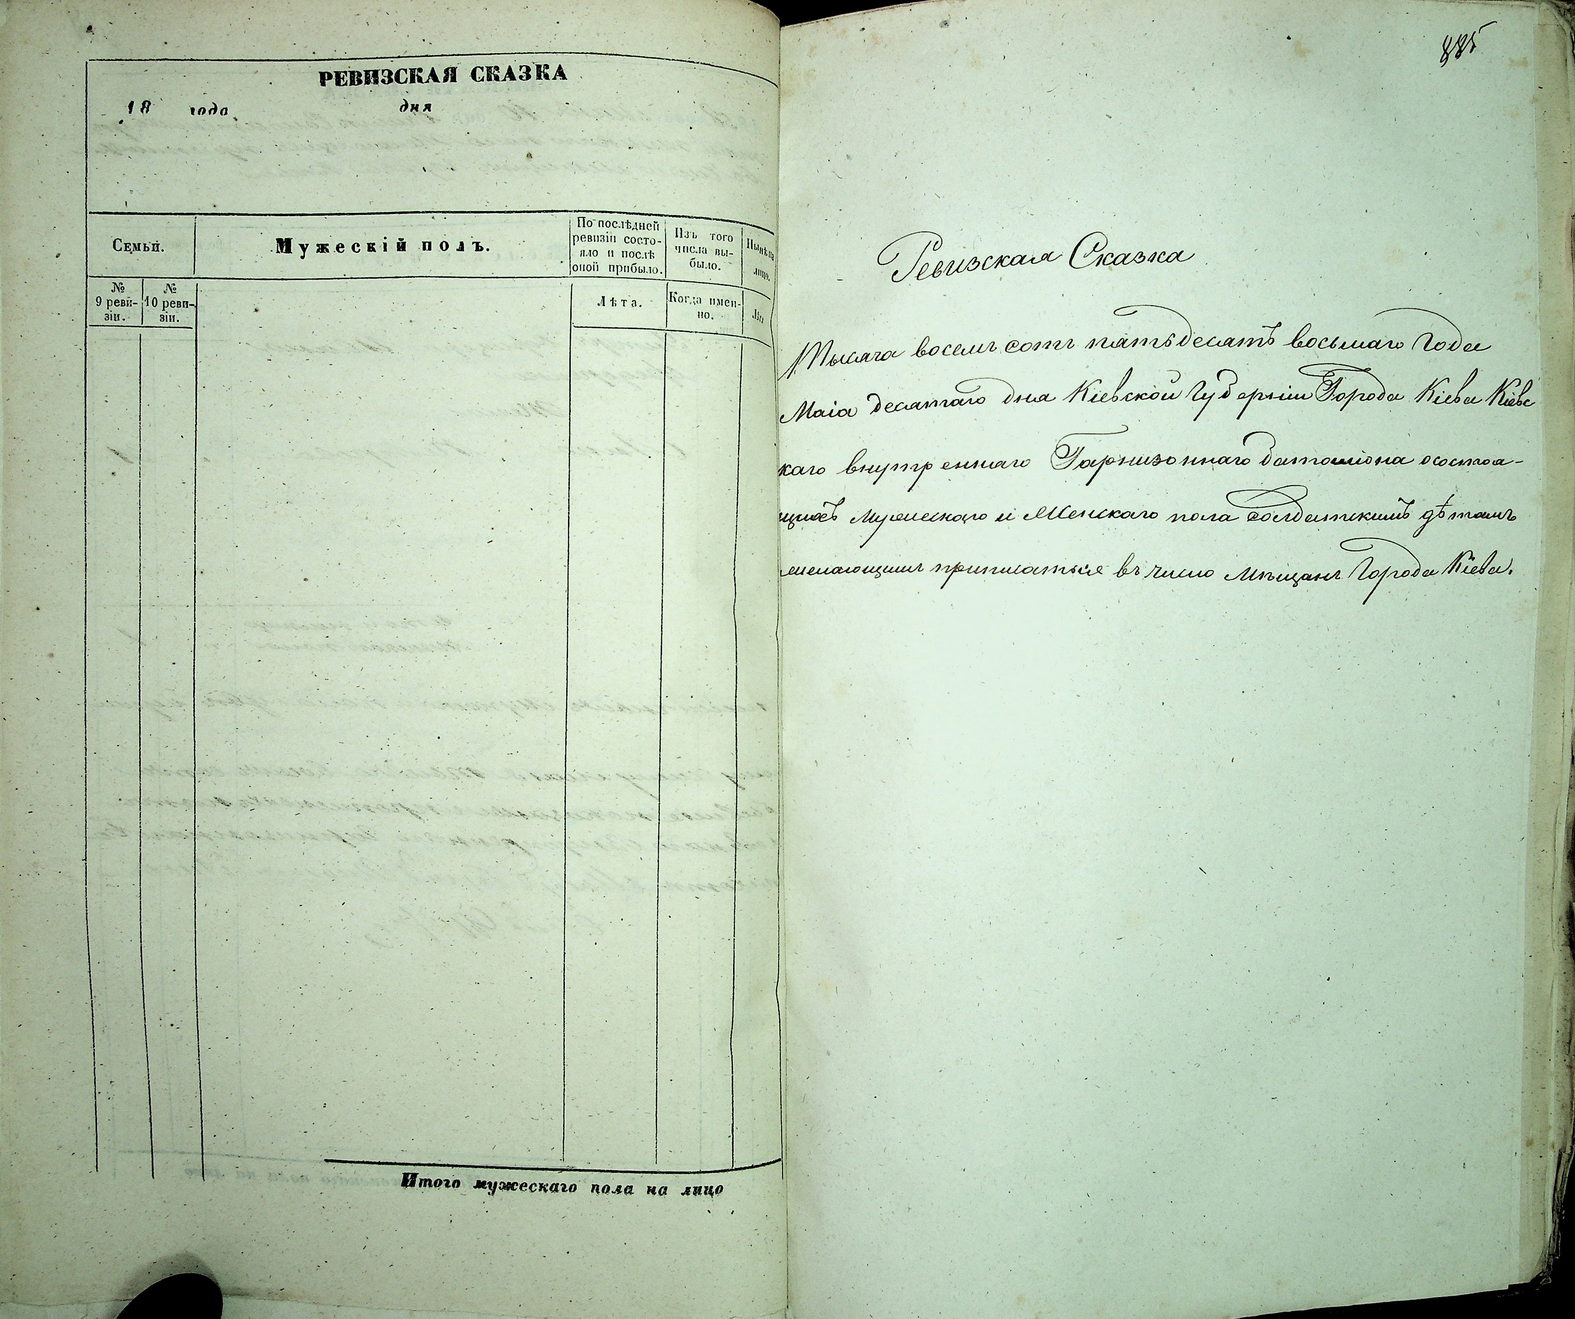 РЕВИЗСКАЯ СКАЗКА
18 года дня
Семьи.
Мужескій полъ.
По послѣдней
ревизіи состо-
яло и послѣ
оной прибыло.
Изъ того
числа вы-
было.
№
9 реви-
зіи.
№
10 реви-
зіи.
Лѣта.
Когда имен-
но.
Итого мужескаго пола на лицо
885
Ревизская Сказка
Тысяча восемъ сотъ пятьдесятъ восьмаго Года
Маія десятаго дня Кіевской Губерніи Города Кіева Кіевс
каго внутренняго Гарнизоннаго баталіона осостоя-
щихъ Мужескаго и Женскаго пола солдатскимъ дѣтямъ
желающимъ приписаться въ число Мѣщанъ Города Кіева.